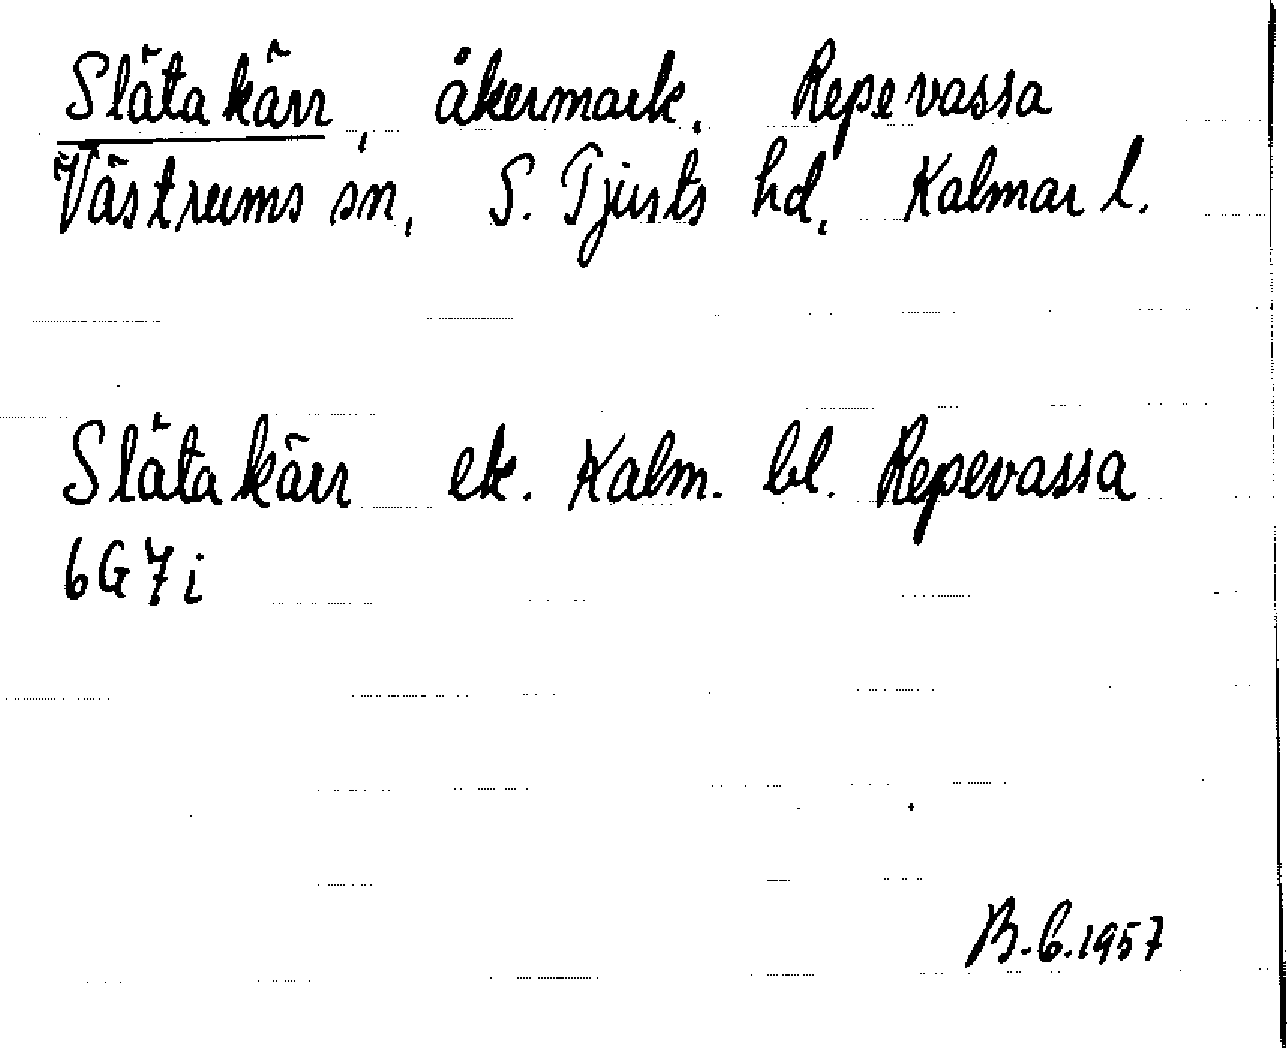 Slätakärr, åkermark. Repevassa
Västrums sn, S. Tjusts hd, Kalmar l.
Slätakärr ek. Kalm. bl. Repevassa
6G7i
B.G.1957